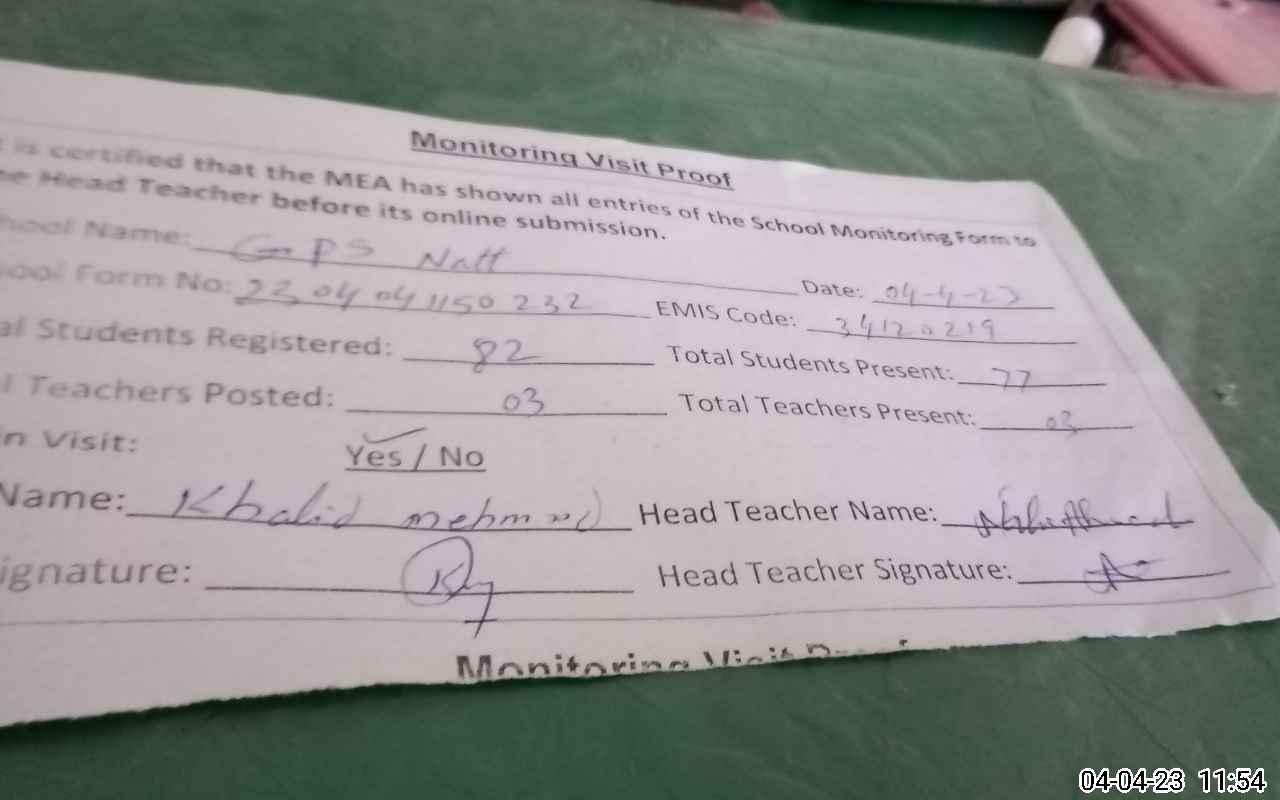 Monitoring Visit Proof
t is certified that the MEA has shown all entries of the School Monitoring Form to
he Head Teacher before its online submission.
hool Name: GPS Natt
Date: 04-4-23
ool Form No: 23 04 04 1150 232 EMIS Code: 34120219
al Students Registered: 82 Total Students Present: 77
l Teachers Posted: 03 Total Teachers Present: 03
n Visit: Yes / No
Name: Khalid mehmood Head Teacher Name:
ignature: Head Teacher Signature:
Monitoring Visit Proof
04-04-23 11:54